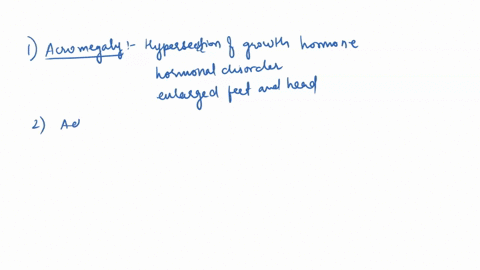 1) Acromegaly :- Hypersection of growth hormone
hormonal disorder
enlarged feet and head
2) Ad